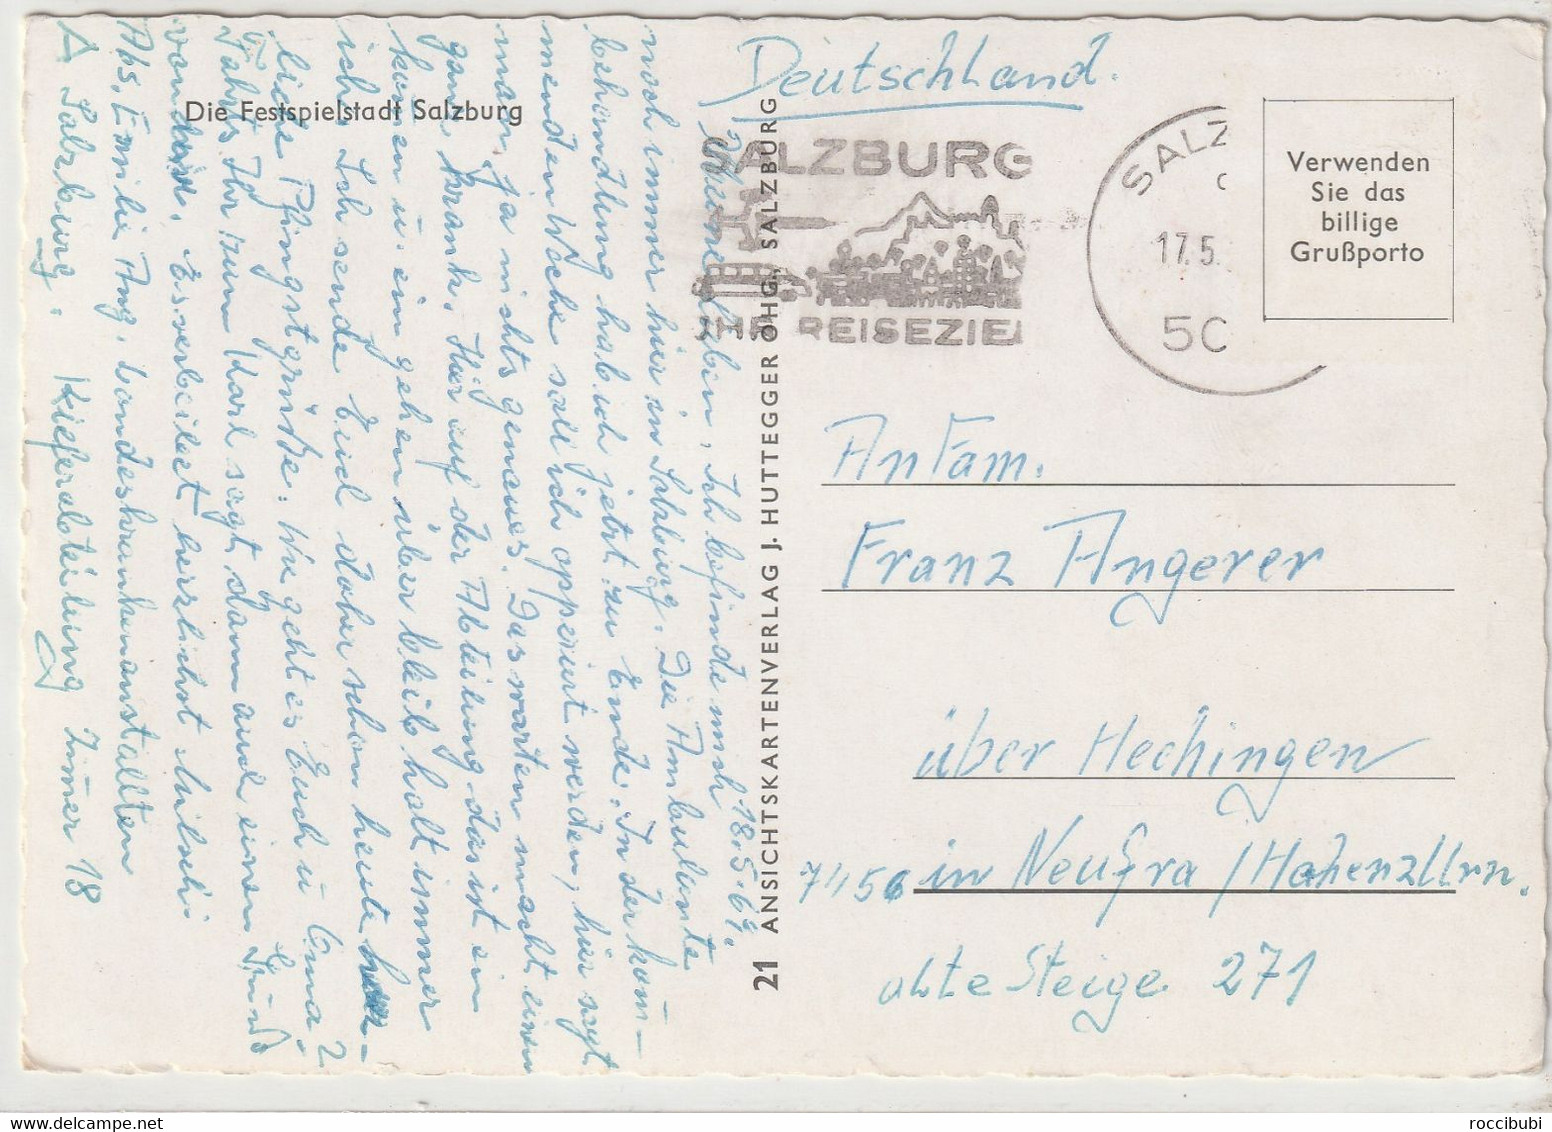 Die Festspielstadt Salzburg
18.5.69.
Meine Lieben, Ich befinde mich
noch immer hier in Salzburg. Die Ambulante
behandlung hab ich jetzt zu Ende. In der kom-
menden Woche soll ich opperiert werden, hier sagt
man ja nichts genaues. Das warten macht einen
ganz krank. Hier auf der Abteilung das ist ein
kom̄en u. ein gehen über bleib halt immer
ich. Ich sende Euch daher schon heute
liche Pfingstgrüße. Wie geht es Euch u Oma?
Fährt Ihr zum Karl sagt dann auch einen Gruß
von mir. Es verbleibt herzlichst
Abs. Emilie Ang. Landeskrankenanstallten
A Salzburg. Kieferabteilung Zim̄er 18
21 ANSICHTSKARTENVERLAG J. HUTTEGGER OHG, SALZBURG
Deutschland.
SALZBURG
IHR REISEZIEL
SALZ
17.5
50
Verwenden
Sie das
billige
Grußporto
An Fam.
Franz Angerer
über Hechingen
7456 in Neufra / Hohenzllrn.
alte Steige 271
© roccibubi